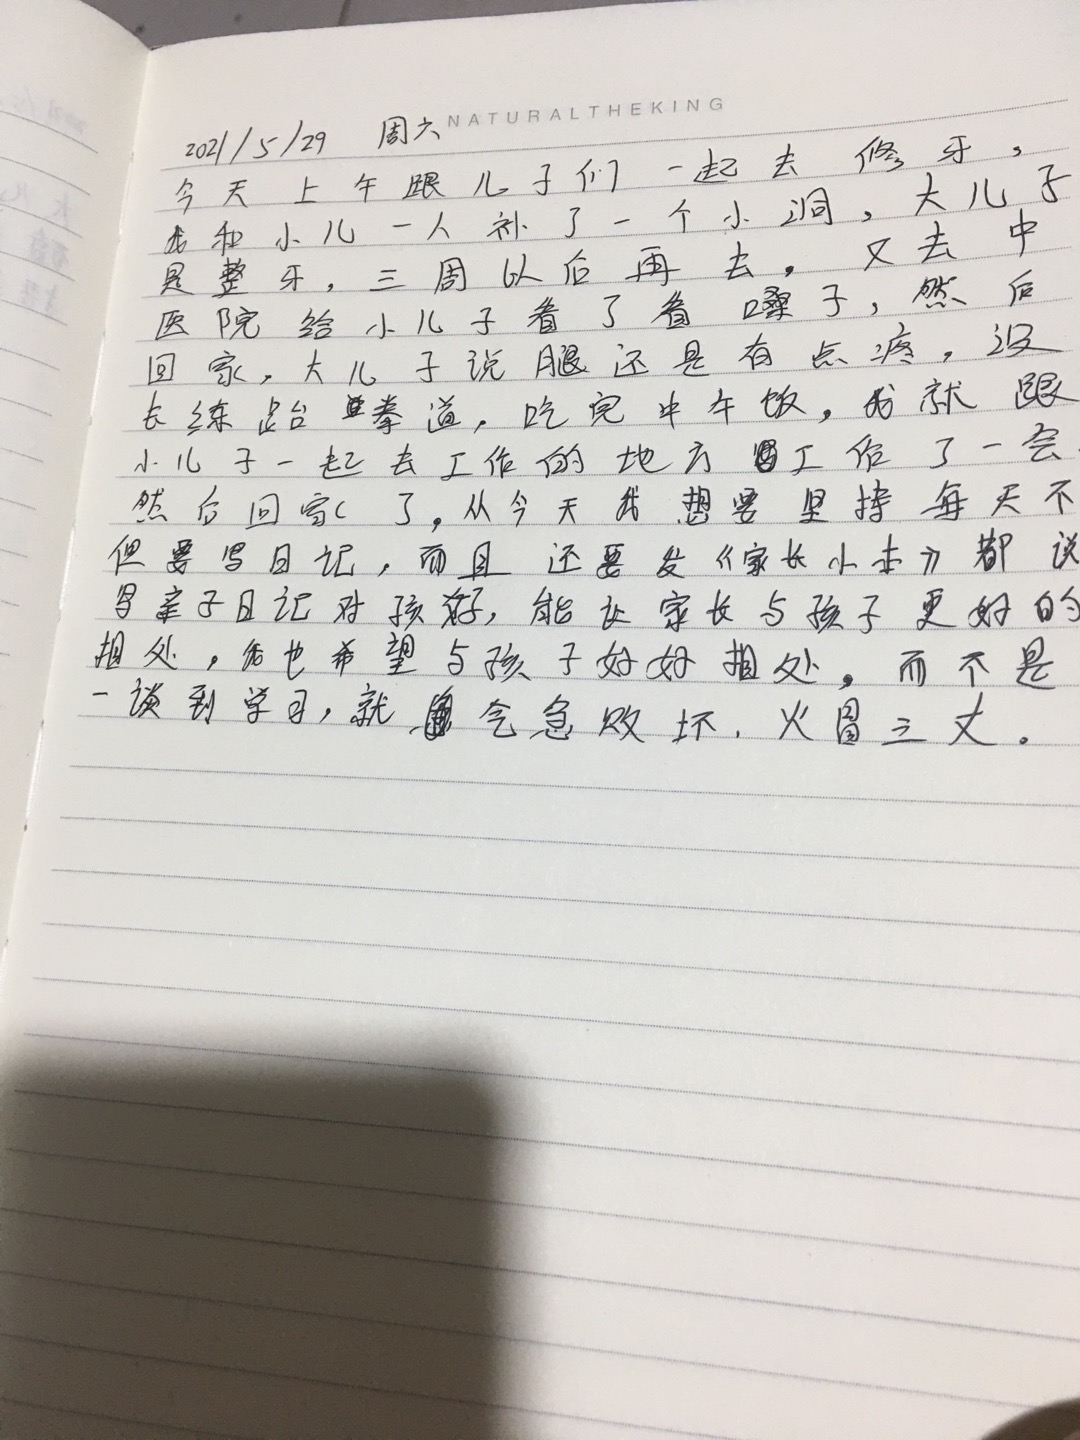 NATURALTHEKING
2021/5/29 周六
今天上午跟儿子们一起去修牙，
我和小儿一人补了一个小洞，大儿子
是整牙，三周以后再去，又去中
医院给小儿子看了看嗓子，然后
回家，大儿子说腿还是有点疼，没
去练跆拳道，吃完中午饭，我就跟
小儿子一起去工作的地方工作了一会，
然后回家了，从今天我想要坚持每天不
但要写日记，而且还要发《家长小本》都说
写亲子日记对孩好，能让家长与孩子更好的
相处，我也希望与孩子好好相处，而不是
一谈到学习，就气急败坏，火冒三丈。